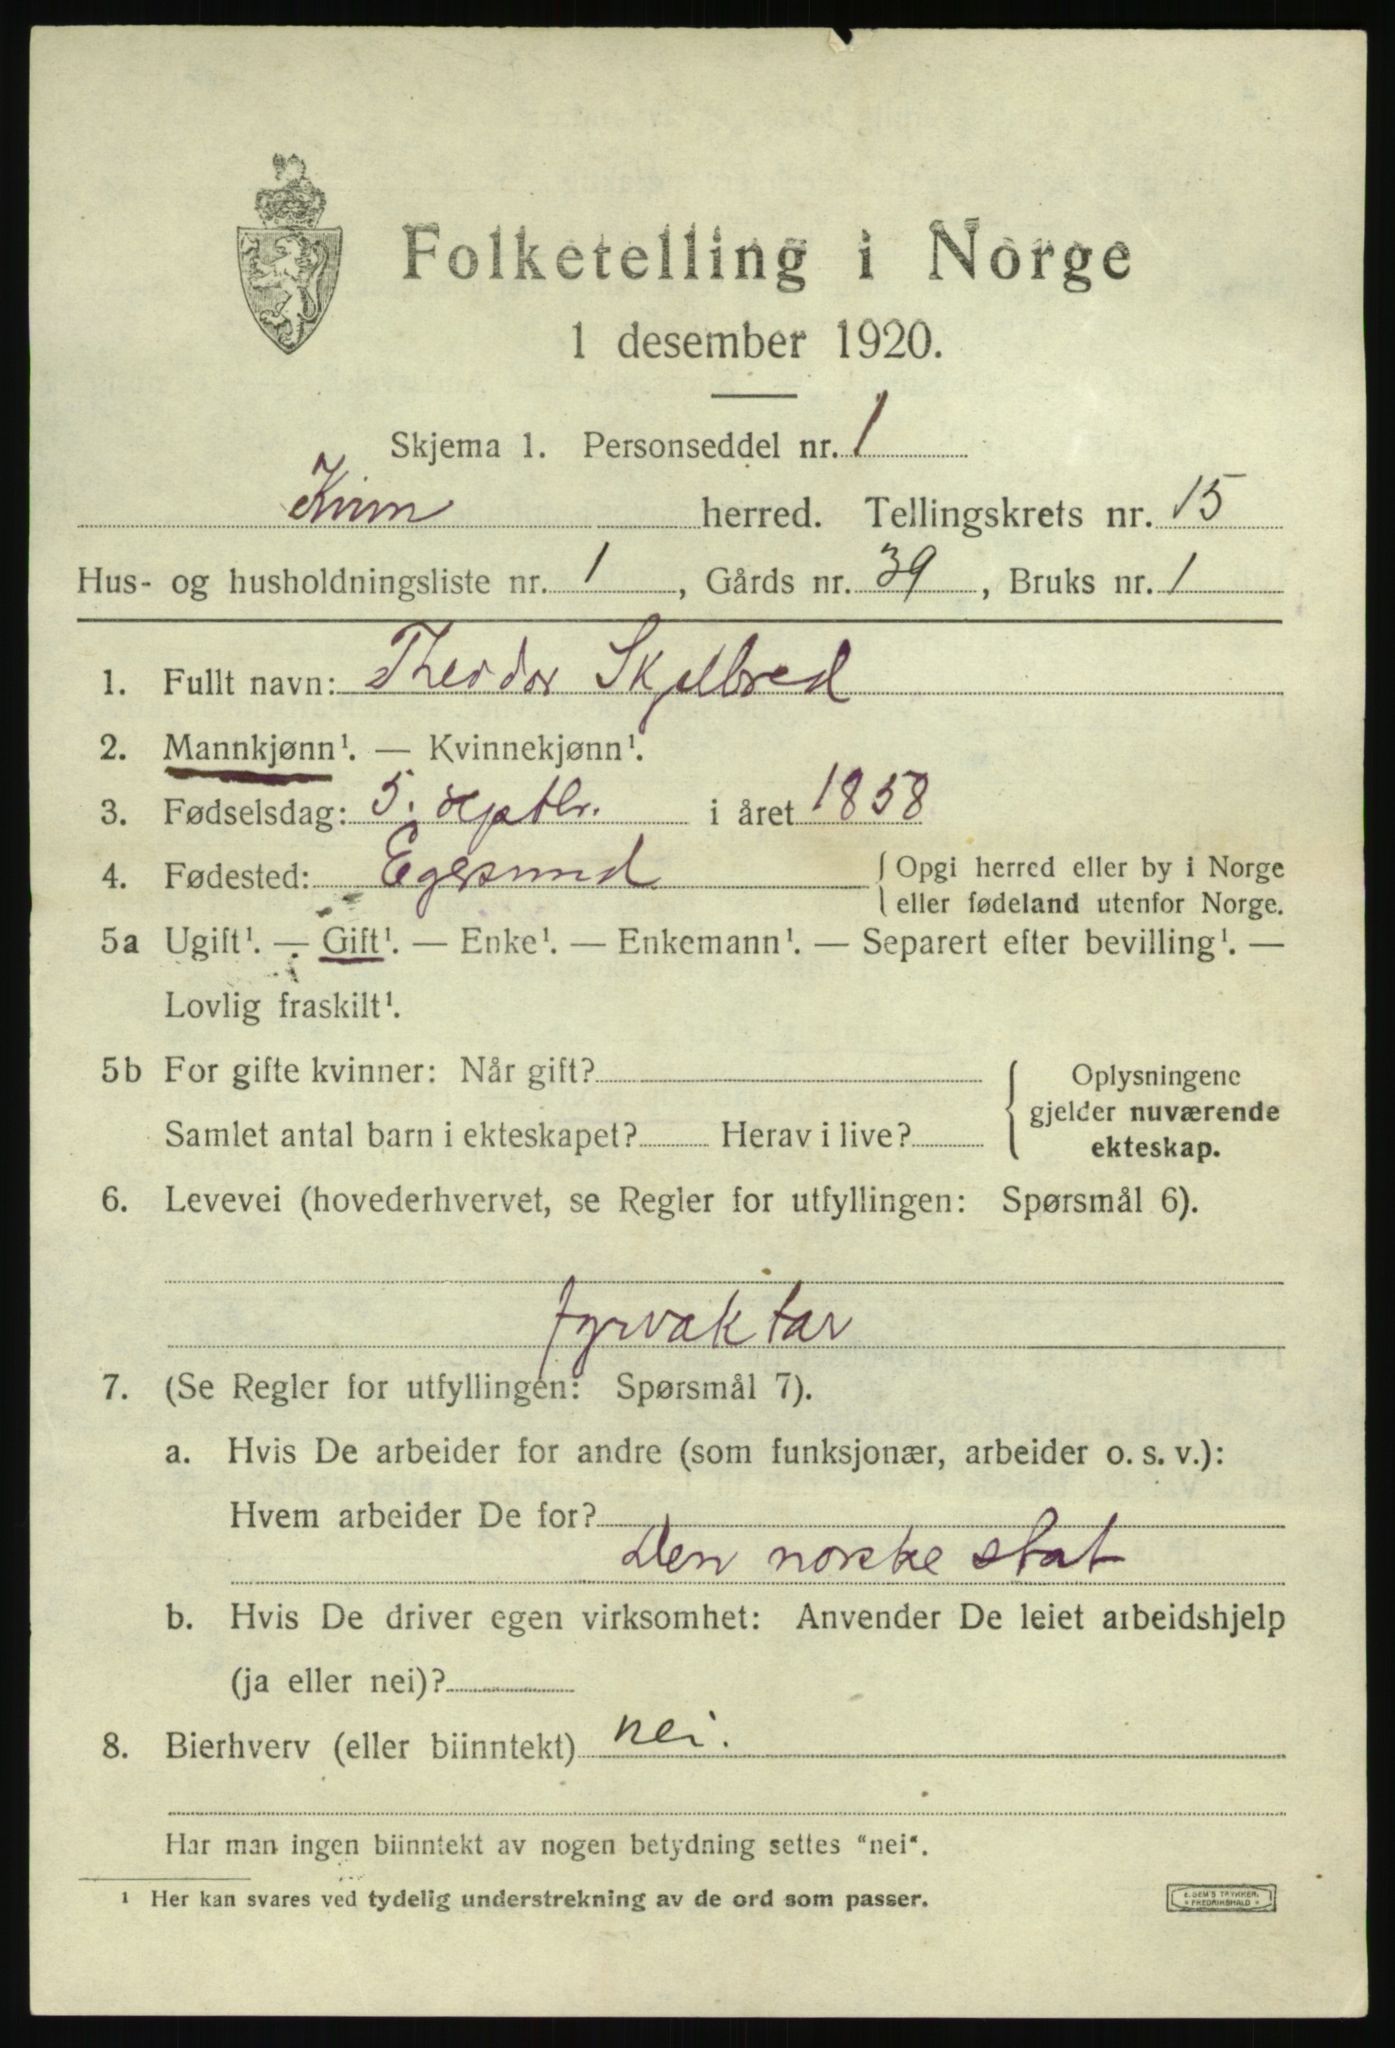 Folketelling i Norge
1 desember 1920.
Skjema 1. Personseddel nr. 1
Kinn herred. Tellingskrets nr. 15
Hus- og husholdningsliste nr. 1, Gårds nr. 39, Bruks nr. 1
1. Fullt navn: Theodor Skjelbred
2. Mannkjønn¹. — Kvinnekjønn¹.
3. Fødselsdag: 5. septbr. i året 1858
4. Fødested: Egersund { Opgi herred eller by i Norge
eller fødeland utenfor Norge.
5a Ugift¹. — Gift¹. — Enke¹. — Enkemann¹. — Separert efter bevilling¹. —
Lovlig fraskilt¹.
5b For gifte kvinner: Når gift? { Oplysningene
gjelder nuværende
Samlet antal barn i ekteskapet? Herav i live?
ekteskap.
6. Levevei (hovederhvervet, se Regler for utfyllingen: Spørsmål 6).
fyrvaktar
7. (Se Regler for utfyllingen: Spørsmål 7).
a. Hvis De arbeider for andre (som funksjonær, arbeider o. s. v.):
Hvem arbeider De for?
Den norske stat
b. Hvis De driver egen virksomhet: Anvender De leiet arbeidshjelp
(ja eller nei)?
8. Bierhverv (eller biinntekt) nei.
Har man ingen biinntekt av nogen betydning settes "nei".
¹ Her kan svares ved tydelig understrekning av de ord som passer.
E. SEM'S TRYKKERI
FREDRIKSHALD